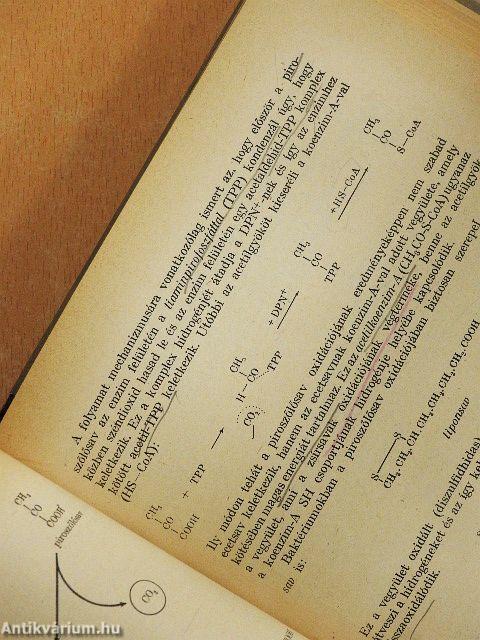 A folyamat mechanizmusára vonatkozólag ismert az, hogy először a piro-
szőlősav az enzim felületén a tiaminpirofoszfáttal (TPP) kondenzál úgy, hogy
közben széndioxid hasad le és az enzim felületén egy acetaldehid-TPP komplex
keletkezik. Ez a komplex hidrogénjét átadja a DPN⁺-nek és így az enzimhez
kötött acetil-TPP keletkezik. Utóbbi az acetilgyököt kicseréli a koenzim-A-val
(HS—CoA):
CH₃
CO
COOH
+ TPP
CO₂
CH₃
H—CO
TPP
+ DPN⁺
CH₃
CO
TPP
+HS—CoA
CH₃
CO
S—CoA
Ily módon tehát a piroszőlősav oxidációjának eredményeképpen nem szabad
ecetsav keletkezik, hanem az ecetsavnak koenzim-A-val adott vegyülete, amely
kötésében magas energiát tartalmaz. Ez az acetilkoenzim-A (CH₃CO-S-CoA) ugyanaz
a vegyület, ami a zsírsavak oxidációjának végterméke, benne az acetilgyök
a koenzim-A SH csoportjának hidrogénje helyébe kapcsolódik.
Baktériumokban a piroszőlősav oxidációjában biztosan szerepel
sav is:
S
S
CH₂ CH₂ CH CH₂ CH₂ CH₂ CH₂ COOH
liponsav
Ez a vegyület oxidált (diszulfidhidas)
átveszi a hidrogéneket és az így kel
CH₃
CO
COOH
piroszőlősav
CO₂
Antikvárium.hu